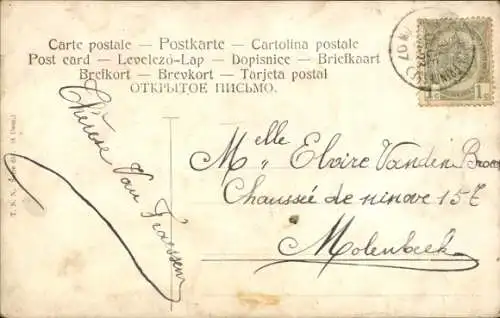 Carte postale — Postkarte — Cartolina postale
Post card — Levelező-Lap — Dopisnice — Briefkaart
Brefkort — Brevkort — Tarjeta postal
ОТКРЫТОЕ ПИСЬМО.
Thérèse Van
Melle
M" Elvire Vanden
Chaussée de ninove 157
Molenbeek